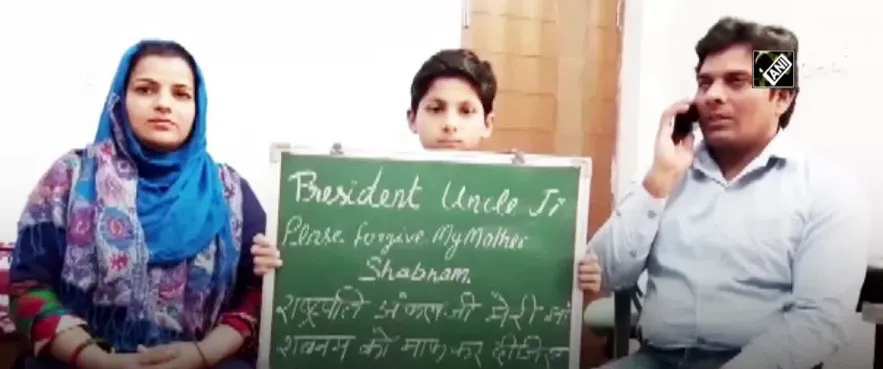 President Uncle Ji
Please forgive My Mother
Shabnam.
राष्ट्रपति अंकल जी मेरी माँ
शबनम को माफ कर दीजिए
ANI